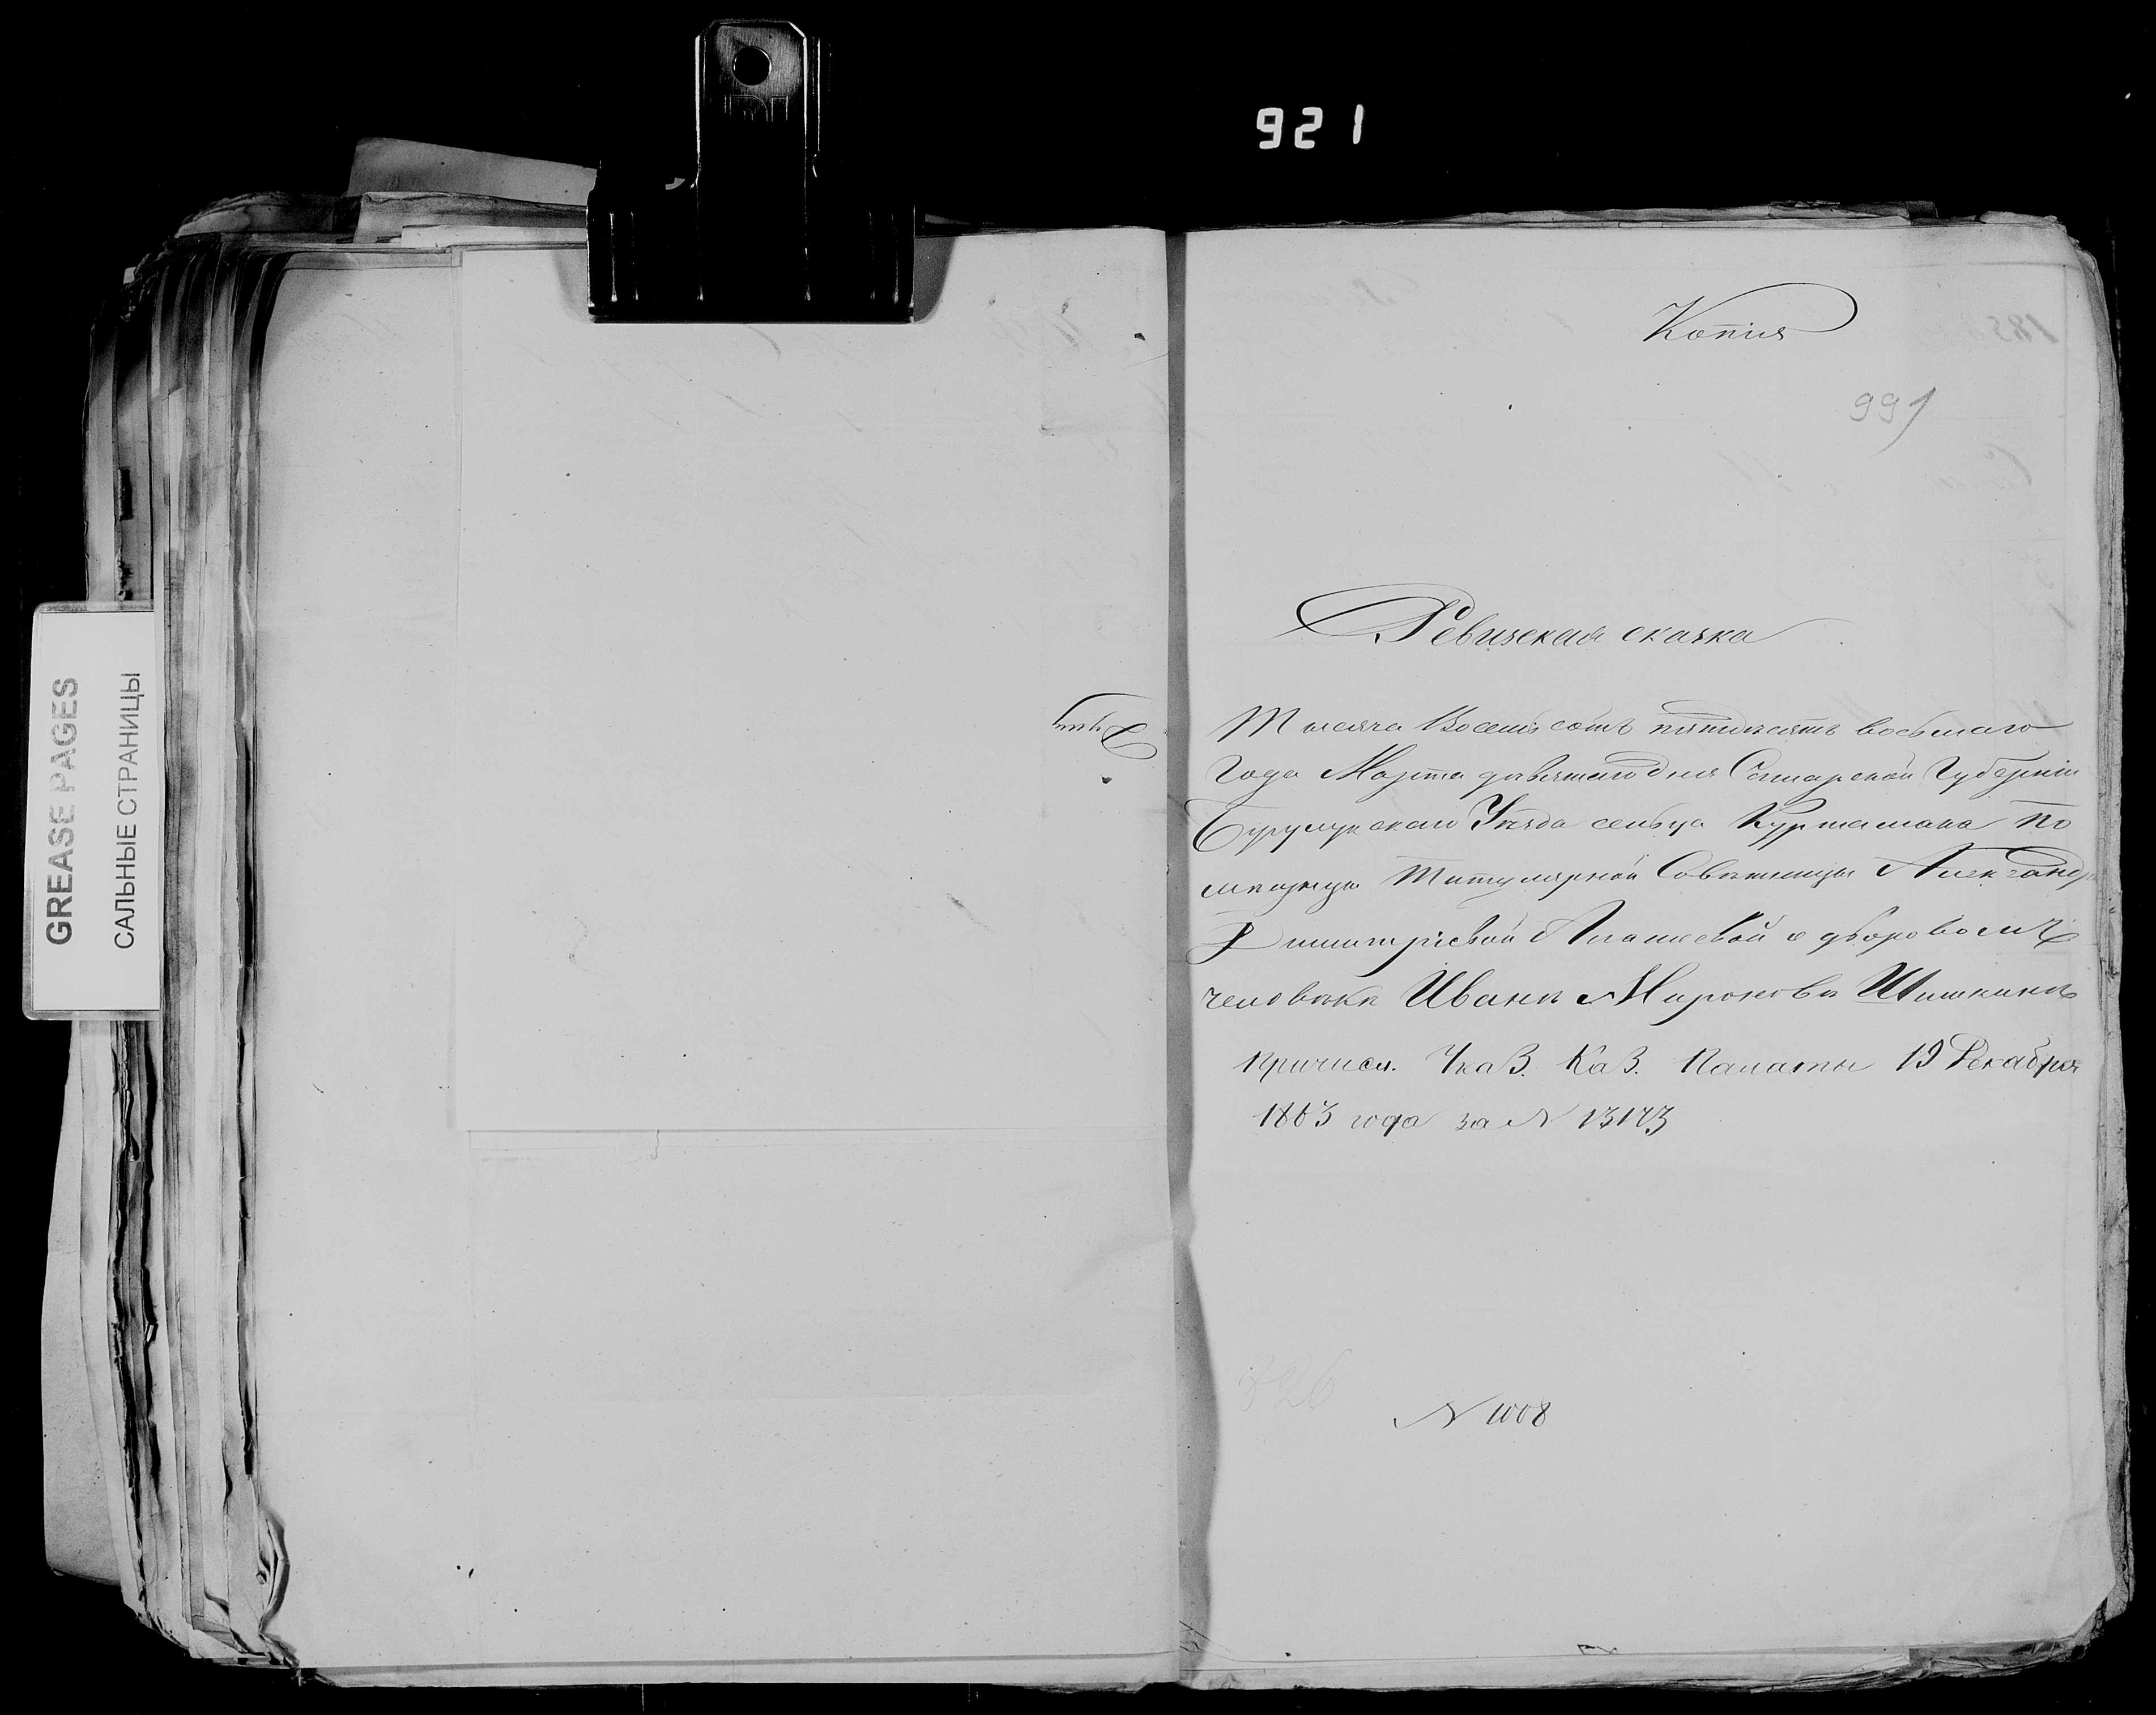 921
GREASE PAGES
САЛЬНЫЕ СТРАНИЦЫ
Копія
991
Ревизская сказка
Тысяча Восемь сотъ пятьдесятъ восьмаго
Года Марта девятаго дня Самарской Губерніи
Бузулукскаго Уѣзда сельца Курташака По
мѣщицы Титулярной Совѣтницы Александры
Дмитріевой о дворовомъ
человѣкѣ Иванѣ Мироновѣ Шишкинѣ
причисл. Указ. Каз. Палаты 19 Декабря
1863 года за N 13173
326
N 1008